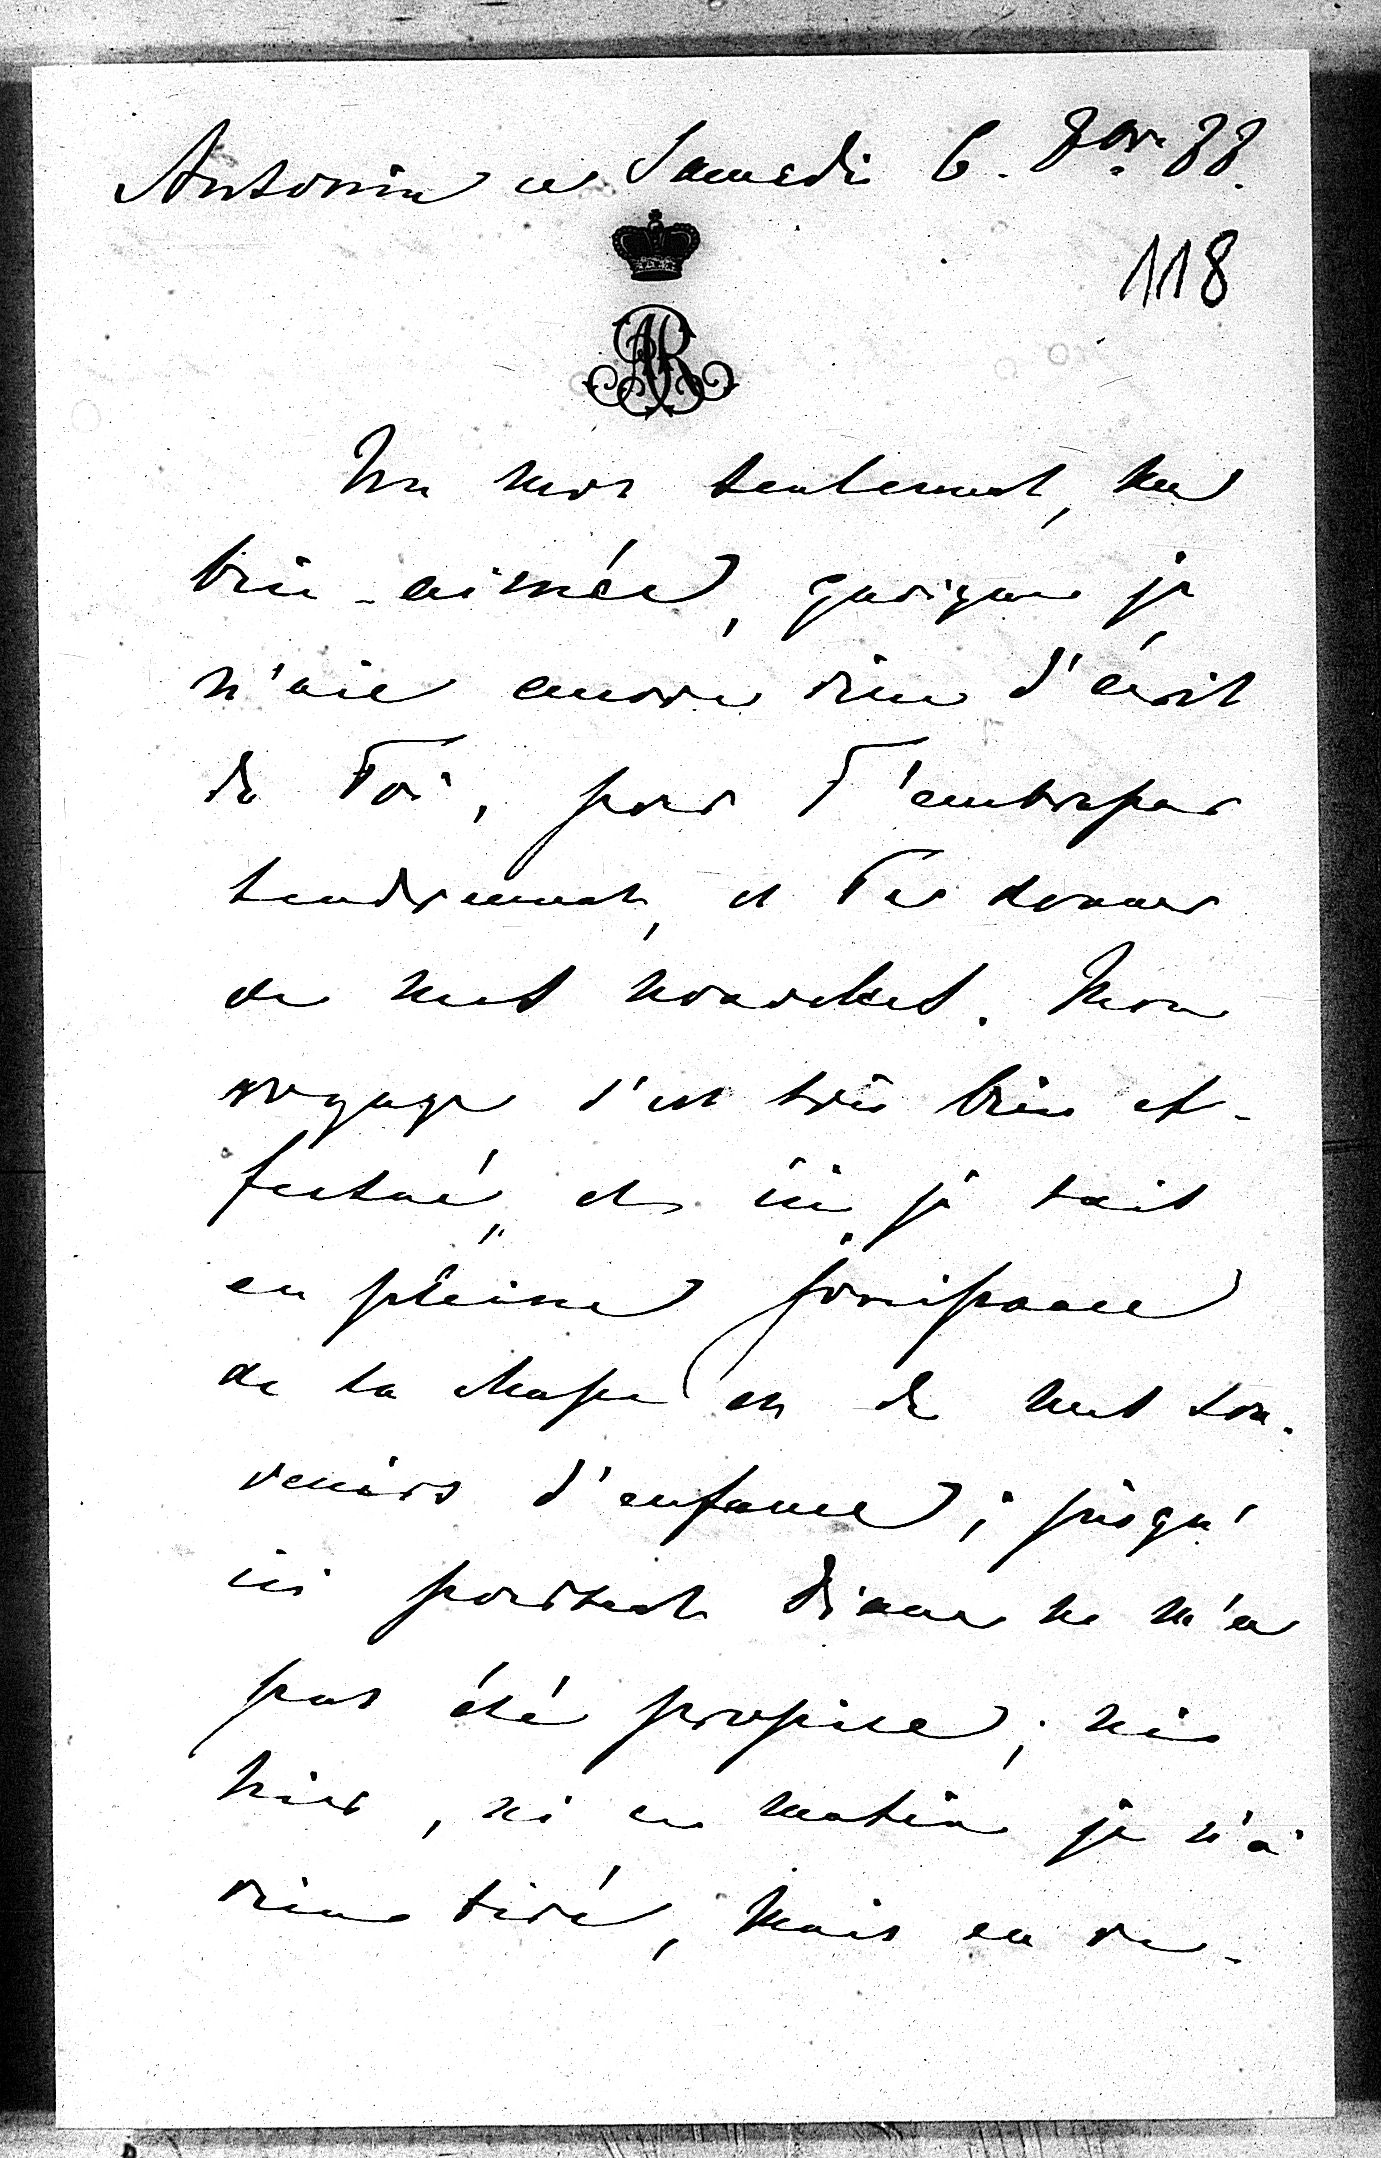 Antonin ce Samedi 6. 8bre 88.
118
Un mot seulement, ma
bien-aimée, quoique je
n'aie encore rien d'écrit
de Toi, pour T'embrasser
tendrement, et Te donner
de mes nouvelles. Mon
voyage s'est très bien ef-
fectué, et ici je suis
en pleine jouissance
de la chasse et de mes sou-
venirs d'enfance; jusqu'
ici pourtant Diane ne m'a
pas été propice; ni
hier, ni ce matin je n'ai
rien tiré, mais en re-